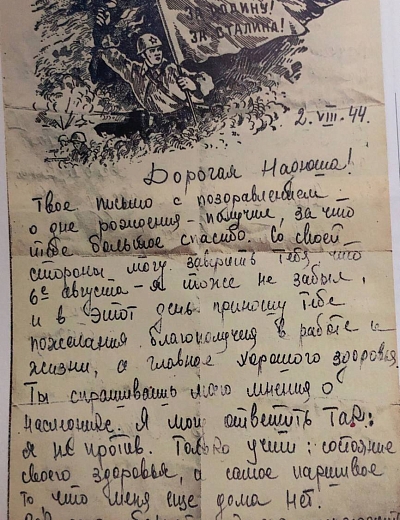 ЗА РОДИНУ!
ЗА СТАЛИНА!
2.VIII.44.
Дорогая Надюша!
Твое письмо с поздравлением
о дне рождения - получил, за что
тебе большое спасибо. Со своей
стороны могу заверить тебя, что
6е августа - я тоже не забыл,
и в этот день приношу тебе
пожелания, благополучия в работе и
жизни, а главное хорошего здоровья.
Ты спрашиваешь моего мнения о
Я могу ответить так:
я не против. Только учти: состояние
своего здоровья, а самое паршивое
то что меня еще дома нет.